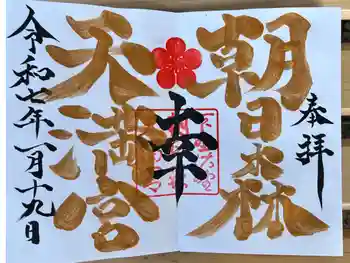 奉拝
朝日森
天満宮
令和七年一月十九日